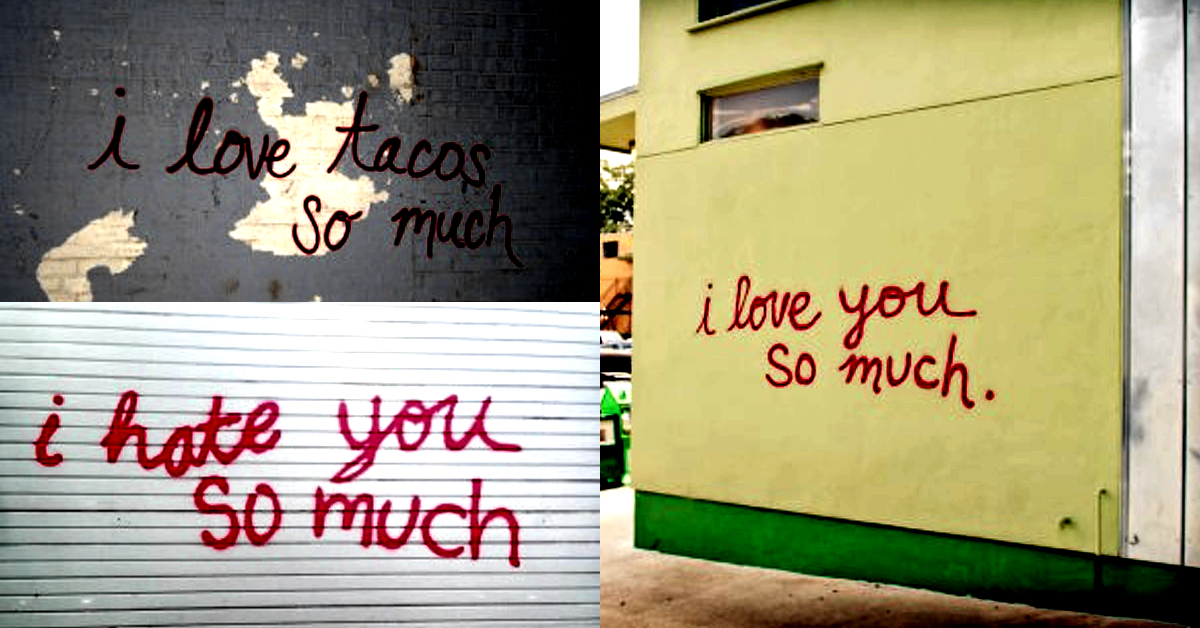 i love tacos
so much
i hate you
so much
i love you
so much.